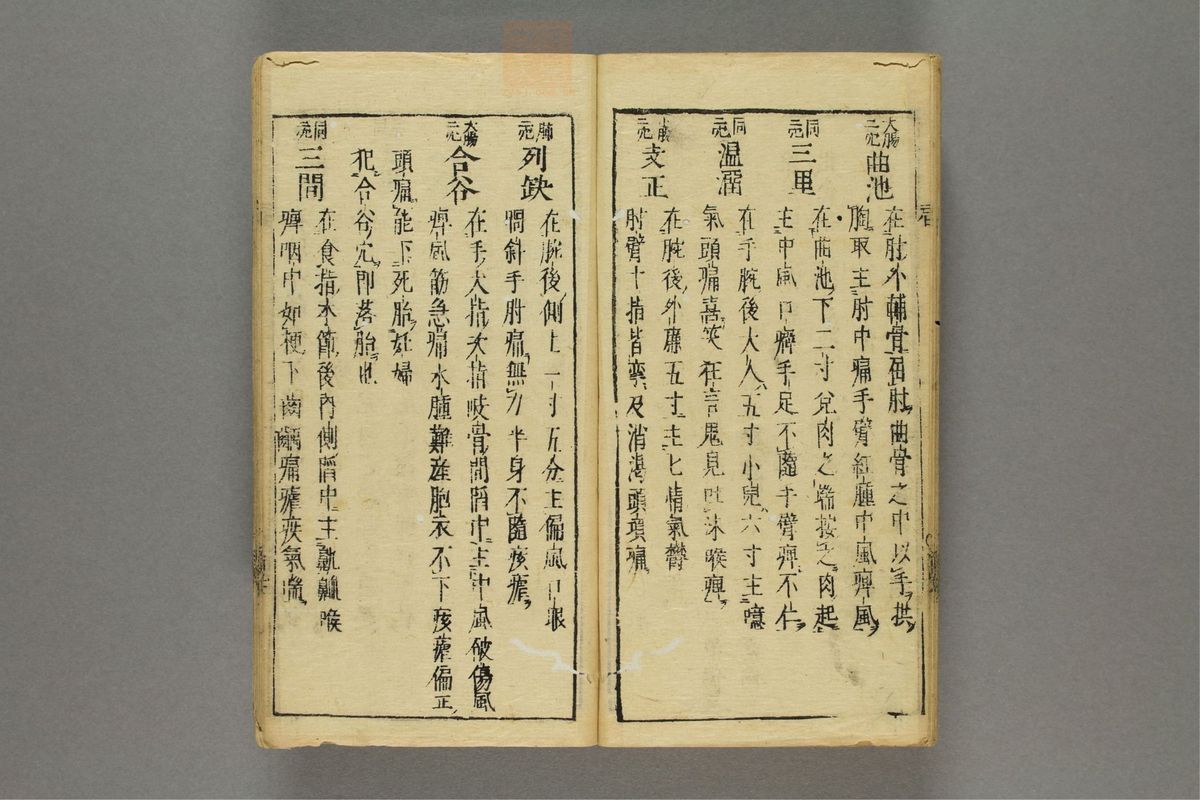 大腸二穴 曲池 在肘外輔骨屈肘曲骨之中以手拱
胸取主肘中痛手臂紅腫中風痹風
同二穴 三里 在曲池下二寸兌肉之端按之肉起
主中風口癖手足不隨手臂痹不仁
同二穴 温溜 在手腕後大人五寸小兒六寸主噫
氣頭痛喜笑狂言鬼見吐沫喉痹
小腸二穴 支正 在腕後外廉五寸主七情氣鬱
肘臂十指皆攣及消渴頭項痛
肺二穴 列缺 在腕後側上一寸五分主偏風口眼
喎斜手肘痛無力半身不隨痎瘧
大腸二穴 合谷 在手大指次指岐骨間陷中主中風破傷風
痹風筋急痛水腫難産胞衣不下痎瘧偏正
頭痛能下死胎妊婦
犯合谷穴即落胎也
同二穴 三間 在食指本節後內側陷中主鼽衂喉
痹咽中如梗下齒齲痛瘧疾氣喘